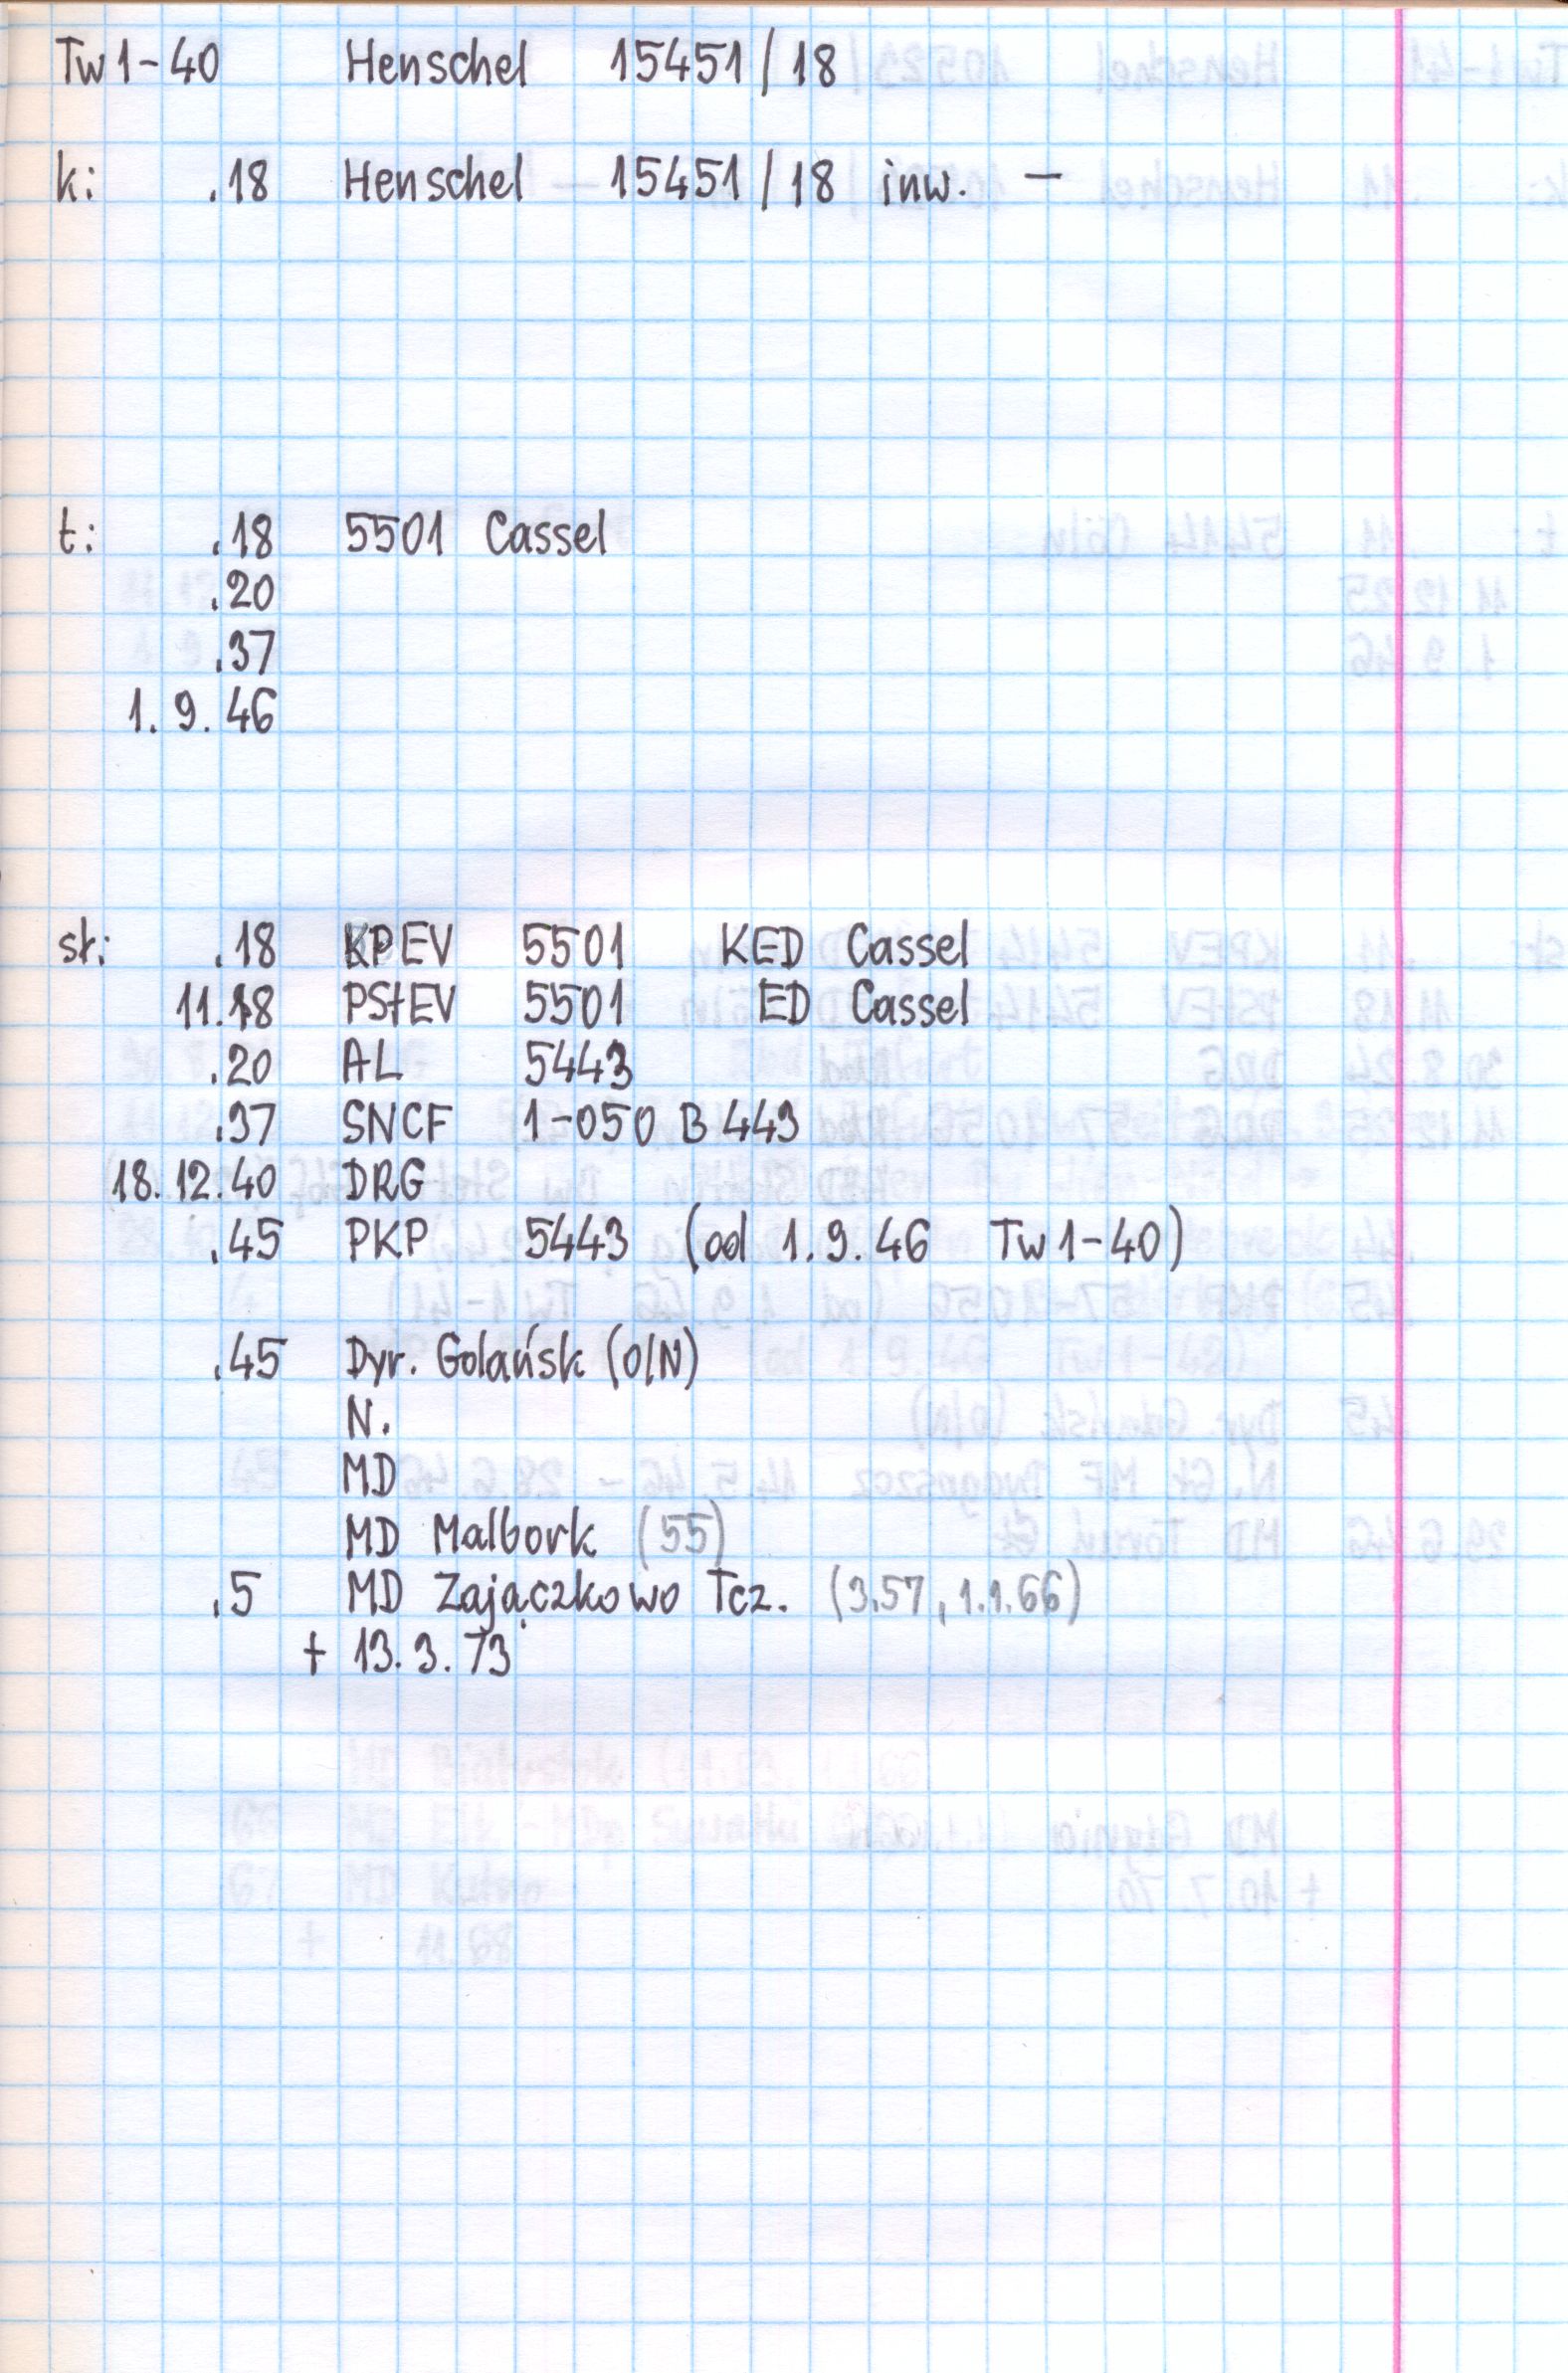 Tw1-40 Henschel 15451/18
k: .18 Henschel 15451/18 inw. –
t: .18 5501 Cassel
.20
.37
1.9.46
st: .18 KPEV 5501 KED Cassel
11.18 PStEV 5501 ED Cassel
.20 AL 5443
.37 SNCF 1-050 B 443
18.12.40 DRG
.45 PKP 5443 (od 1.9.46 Tw1-40)
.45 Dyr. Gdańsk (O/N)
N.
MD
MD Malbork (55)
.5 MD Zajączkowo Tcz. (3.57, 1.1.66)
+ 13.3.73